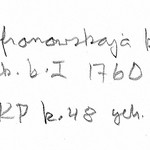 fronowskaja k
b. b. I 1760
KP k. 48 yeh.